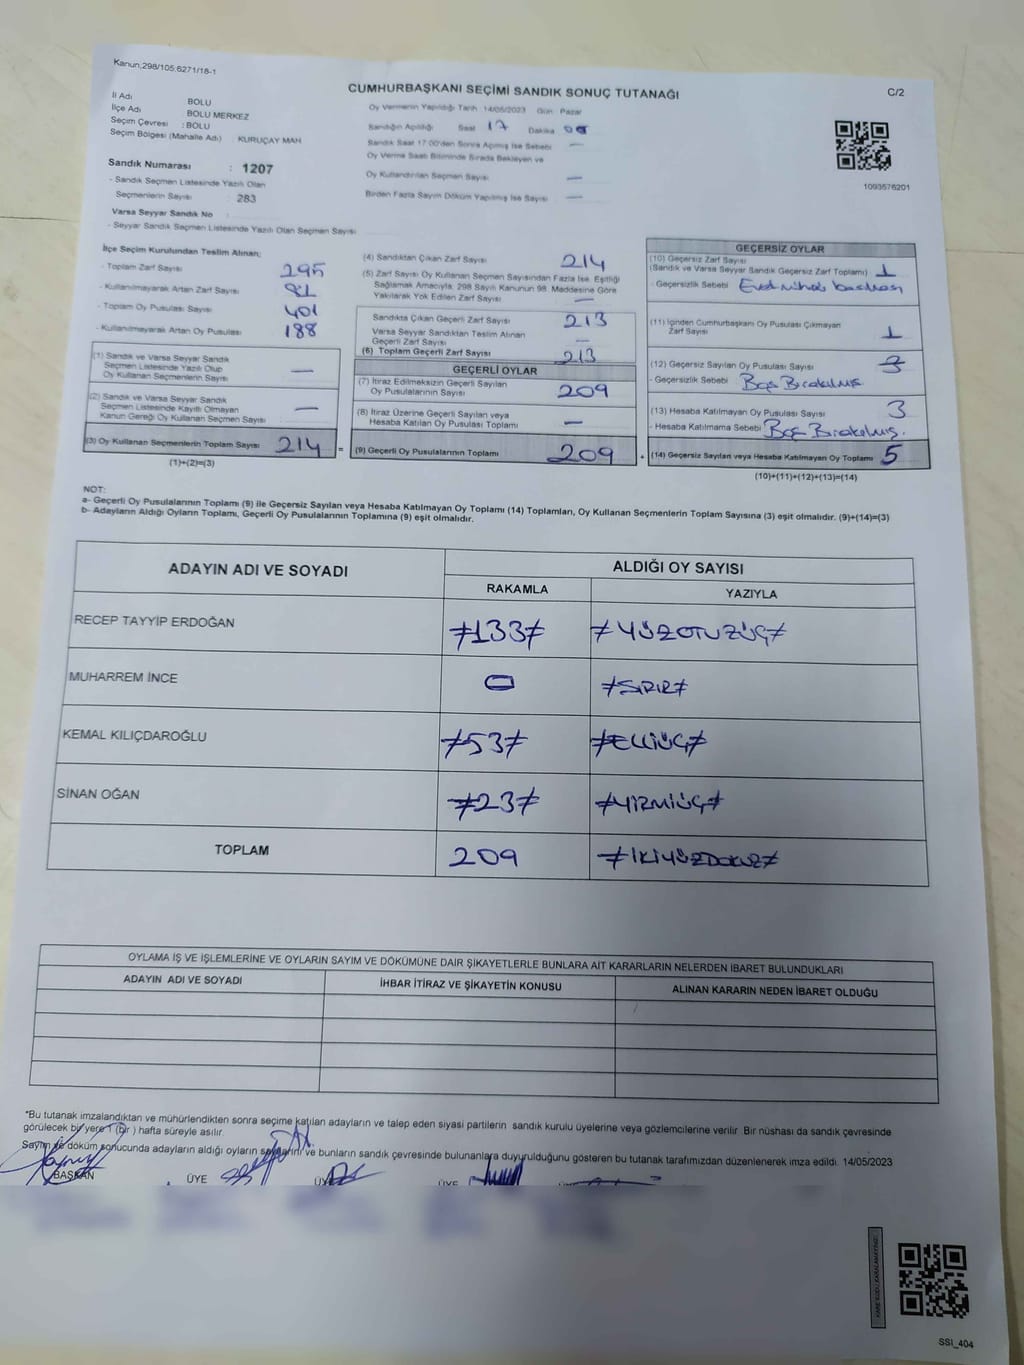 Kanun,298/105,6271/18-1
CUMHURBAŞKANI SEÇİMİ SANDIK SONUÇ TUTANAĞI
C/2
İl Adı BOLU
İlçe Adı BOLU MERKEZ
Seçim Çevresi : BOLU
Seçim Bölgesi (Mahalle Adı) : KURUÇAY MAH
Sandık Numarası : 1207
- Sandık Seçmen Listesinde Yazılı Olan
Seçmenlerin Sayısı : 283
Varsa Seyyar Sandık No :
- Seyyar Sandık Seçmen Listesinde Yazılı Olan Seçmen Sayısı :
Oy Vermenin Yapıldığı Tarih 14/05/2023 Gün : Pazar
Sandığın Açıldığı Saat 17 Dakika
Sandık Saat 17:00'den Sonra Açılmış İse Sebebi —
Oy Verme Saati Bitiminde Sırada Bekleyen ve
Oy Kullandırılan Seçmen Sayısı —
Birden Fazla Sayım Döküm Yapılmış İse Sayısı —
1093576201
İlçe Seçim Kurulundan Teslim Alınan;
- Toplam Zarf Sayısı 295
- Kullanılmayarak Artan Zarf Sayısı 81
- Toplam Oy Pusulası Sayısı 401
- Kullanılmayarak Artan Oy Pusulası 188
(1) Sandık ve Varsa Seyyar Sandık
Seçmen Listesinde Yazılı Olup
Oy Kullanan Seçmenlerin Sayısı —
(2) Sandık ve Varsa Seyyar Sandık
Seçmen Listesinde Kayıtlı Olmayan
Kanun Gereği Oy Kullanan Seçmen Sayısı —
(3) Oy Kullanan Seçmenlerin Toplam Sayısı 214 =
(1)+(2)=(3)
(4) Sandıktan Çıkan Zarf Sayısı 214
(5) Zarf Sayısı Oy Kullanan Seçmen Sayısından Fazla İse, Eşitliği
Sağlamak Amacıyla, 298 Sayılı Kanunun 98. Maddesine Göre
Yakılarak Yok Edilen Zarf Sayısı —
Sandıkta Çıkan Geçerli Zarf Sayısı 213
Varsa Seyyar Sandıktan Teslim Alınan
Geçerli Zarf Sayısı —
(6) Toplam Geçerli Zarf Sayısı 213
GEÇERLİ OYLAR
(7) İtiraz Edilmeksizin Geçerli Sayılan
Oy Pusulalarının Sayısı 209
(8) İtiraz Üzerine Geçerli Sayılan veya
Hesaba Katılan Oy Pusulası Toplamı —
(9) Geçerli Oy Pusulalarının Toplamı 209 +
GEÇERSİZ OYLAR
(10) Geçersiz Zarf Sayısı
(Sandık ve Varsa Seyyar Sandık Geçersiz Zarf Toplamı) 1
- Geçersizlik Sebebi
(11) İçinden Cumhurbaşkanı Oy Pusulası Çıkmayan
Zarf Sayısı 1
(12) Geçersiz Sayılan Oy Pusulası Sayısı
- Geçersizlik Sebebi Boş Bırakılmış
(13) Hesaba Katılmayan Oy Pusulası Sayısı 3
- Hesaba Katılmama Sebebi Boş Bırakılmış.
(14) Geçersiz Sayılan veya Hesaba Katılmayan Oy Toplamı 5
(10)+(11)+(12)+(13)=(14)
NOT:
a- Geçerli Oy Pusulalarının Toplamı (9) ile Geçersiz Sayılan veya Hesaba Katılmayan Oy Toplamı (14) Toplamları, Oy Kullanan Seçmenlerin Toplam Sayısına (3) eşit olmalıdır. (9)+(14)=(3)
b- Adayların Aldığı Oyların Toplamı, Geçerli Oy Pusulalarının Toplamına (9) eşit olmalıdır.
ADAYIN ADI VE SOYADI ALDIĞI OY SAYISI
RAKAMLA YAZIYLA
RECEP TAYYİP ERDOĞAN ≠133≠ ≠YÜZOTUZÜÇ≠
MUHARREM İNCE 0 ≠SIFIR≠
KEMAL KILIÇDAROĞLU ≠53≠ ≠ELLİÜÇ≠
SİNAN OĞAN ≠23≠ ≠YİRMİÜÇ≠
TOPLAM 209 ≠İKİYÜZDOKUZ≠
OYLAMA İŞ VE İŞLEMLERİNE VE OYLARIN SAYIM VE DÖKÜMÜNE DAİR ŞİKAYETLERLE BUNLARA AİT KARARLARIN NELERDEN İBARET BULUNDUKLARI
ADAYIN ADI VE SOYADI İHBAR İTİRAZ VE ŞİKAYETİN KONUSU ALINAN KARARIN NEDEN İBARET OLDUĞU
*Bu tutanak imzalandıktan ve mühürlendikten sonra seçime katılan adayların ve talep eden siyasi partilerin sandık kurulu üyelerine veya gözlemcilerine verilir. Bir nüshası da sandık çevresinde
görülecek bir yere 1 (bir ) hafta süreyle asılır.
Sayım ve döküm sonucunda adayların aldığı oyların sayılarını ve bunların sandık çevresinde bulunanlara duyurulduğunu gösteren bu tutanak tarafımızdan düzenlenerek imza edildi. 14/05/2023
BAŞKAN ÜYE ÜYE ÜYE
SSI_404